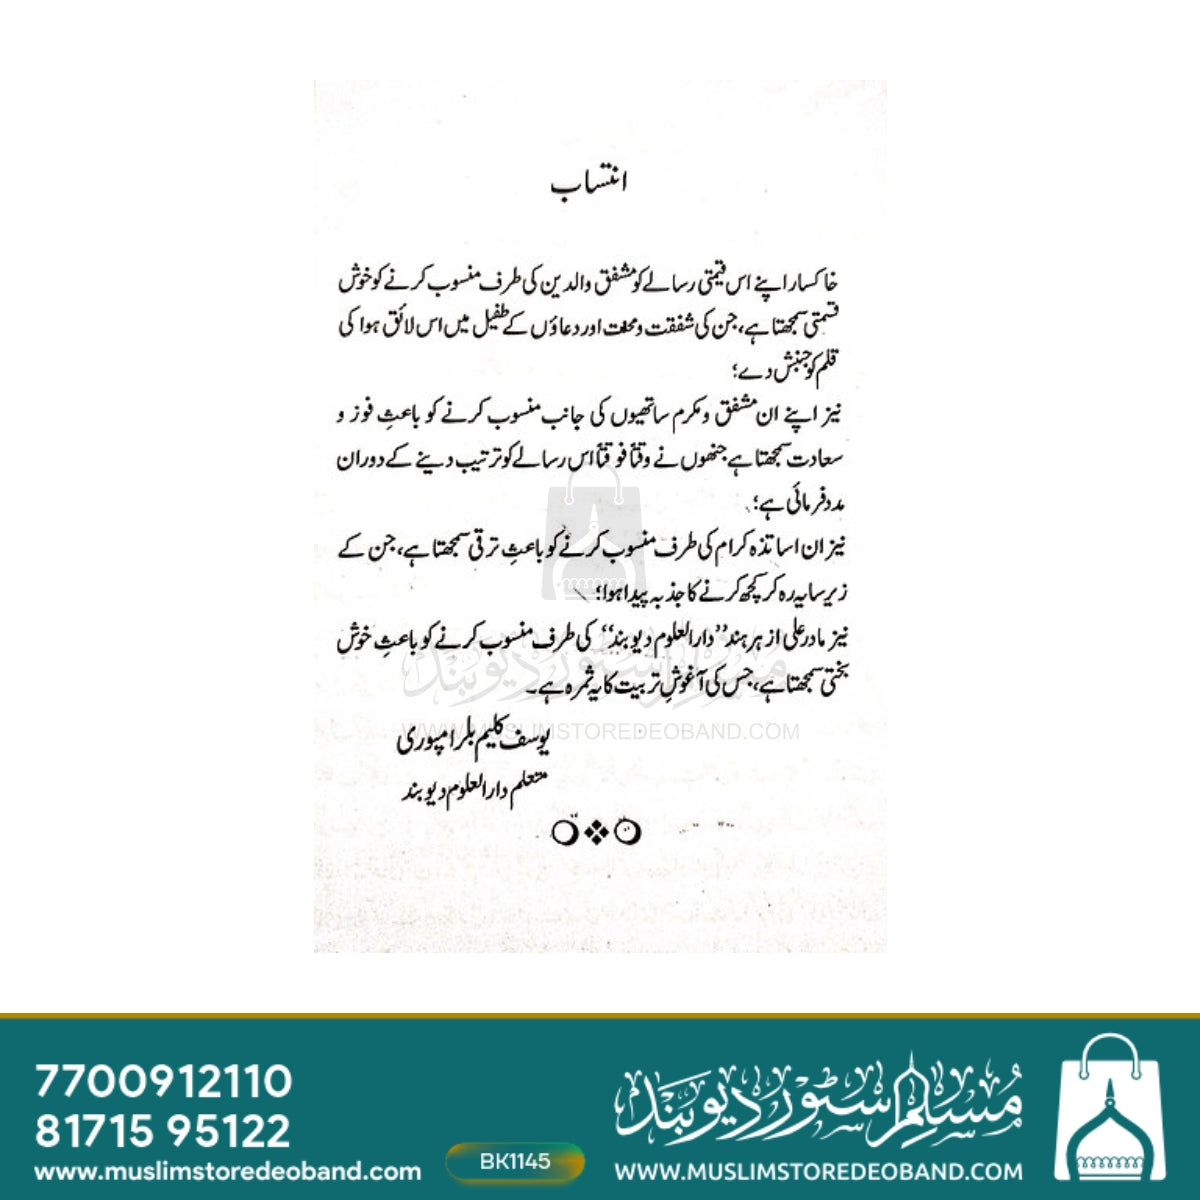 انتساب
خاکسار اپنے اس قیمتی رسالے کو مشفق والدین کی طرف منسوب کرنے کو خوش
قسمتی سمجھتا ہے، جن کی شفقت ومحنت اور دعاؤں کے طفیل میں اس لائق ہوا کی
قلم کو جنبش دے؛
نیز اپنے ان مشفق ومکرم ساتھیوں کی جانب منسوب کرنے کو باعثِ فوز و
سعادت سمجھتا ہے جنھوں نے وقتاً فوقتاً اس رسالے کو ترتیب دینے کے دوران
مدد فرمائی ہے؛
نیز ان اساتذہ کرام کی طرف منسوب کرنے کو باعثِ ترقی سمجھتا ہے، جن کے
زیر سایہ رہ کر کچھ کرنے کا جذبہ پیدا ہوا؛
نیز مادر علمی ازہر ہند ”دارالعلوم دیوبند“ کی طرف منسوب کرنے کو باعثِ خوش
بختی سمجھتا ہے، جس کی آغوشِ تربیت کا یہ ثمرہ ہے۔
یوسف کلیم بلرامپوری
متعلم دارالعلوم دیوبند
مسلم سٹور دیوبند
WWW.MUSLIMSTOREDEOBAND.COM
7700912110
81715 95122
www.muslimstoredeoband.com
BK1145
مسلم سٹور دیوبند
WWW.MUSLIMSTOREDEOBAND.COM